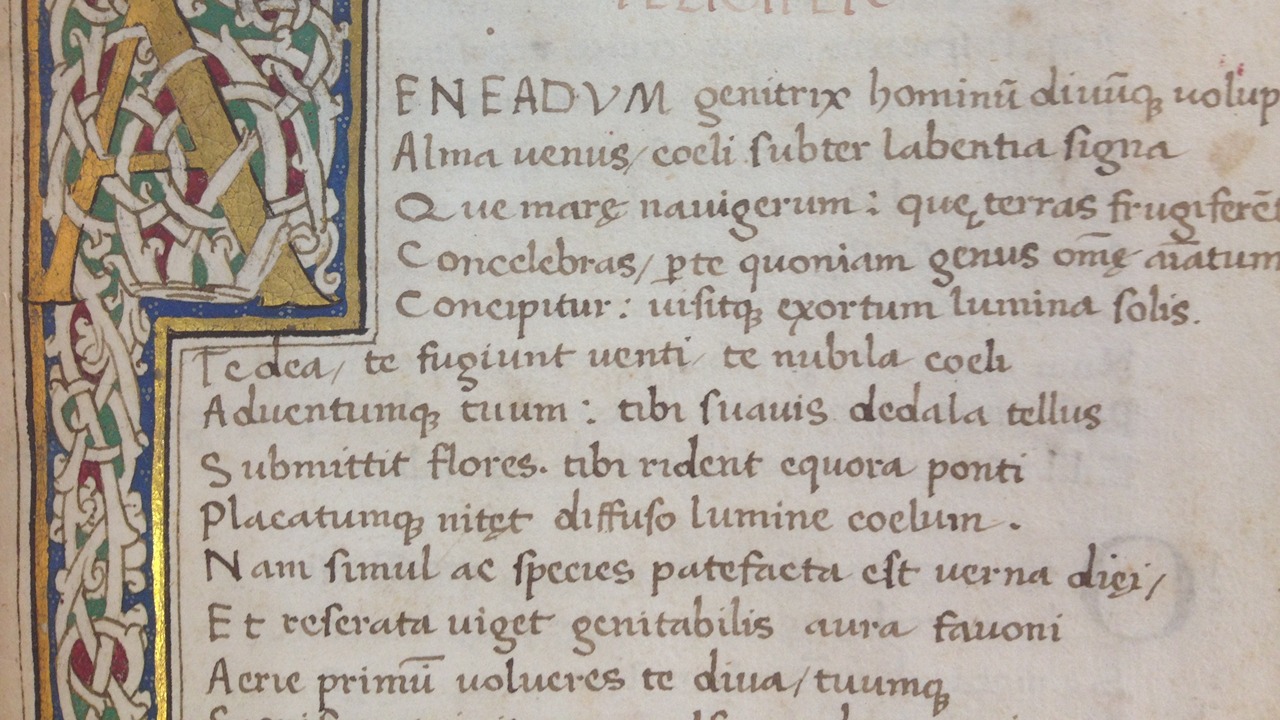 FELICITER
AENEADVM genitrix hominū diuūq; uolup
Alma uenus/ coeli subter labentia signa
Que marę nauigerum : quę terras frugiferē
Concelebras/ ꝑte quoniam genus om̄ę aīatum
Concipitur : uisitq; exortum lumina solis.
Te dea/ te fugiunt uenti/ te nubila coeli
Aduentumq; tuum : tibi suauis dedala tellus
Submittit flores. tibi rident equora ponti
Placatumq; nitęt diffuso lumine coelum .
Nam simul ac species patefacta est uerna dięi/
Et reserata uiget genitabilis aura fauoni
Aerie primū uolucres te diua/ tuumq;